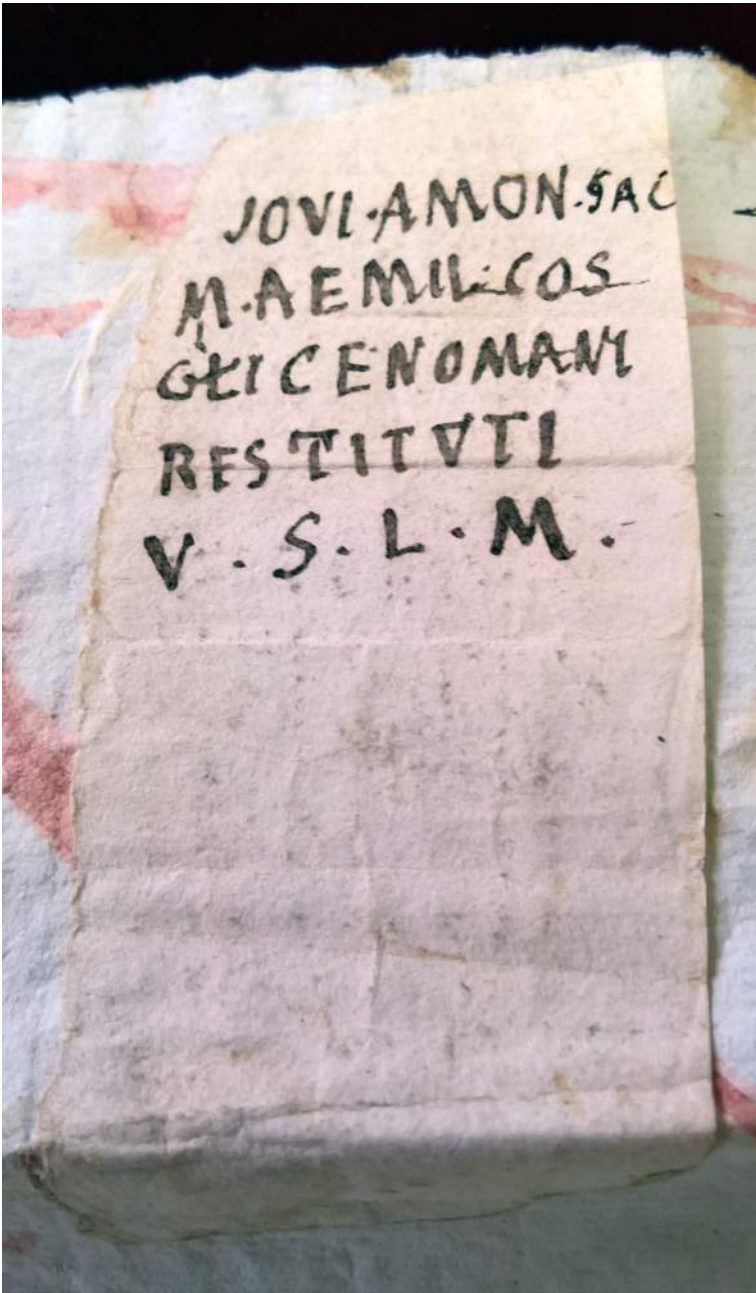 JOVI·AMON·SAC
M·AEMIL·COS
GLICENOMANI
RESTITVTI
V·S·L·M·